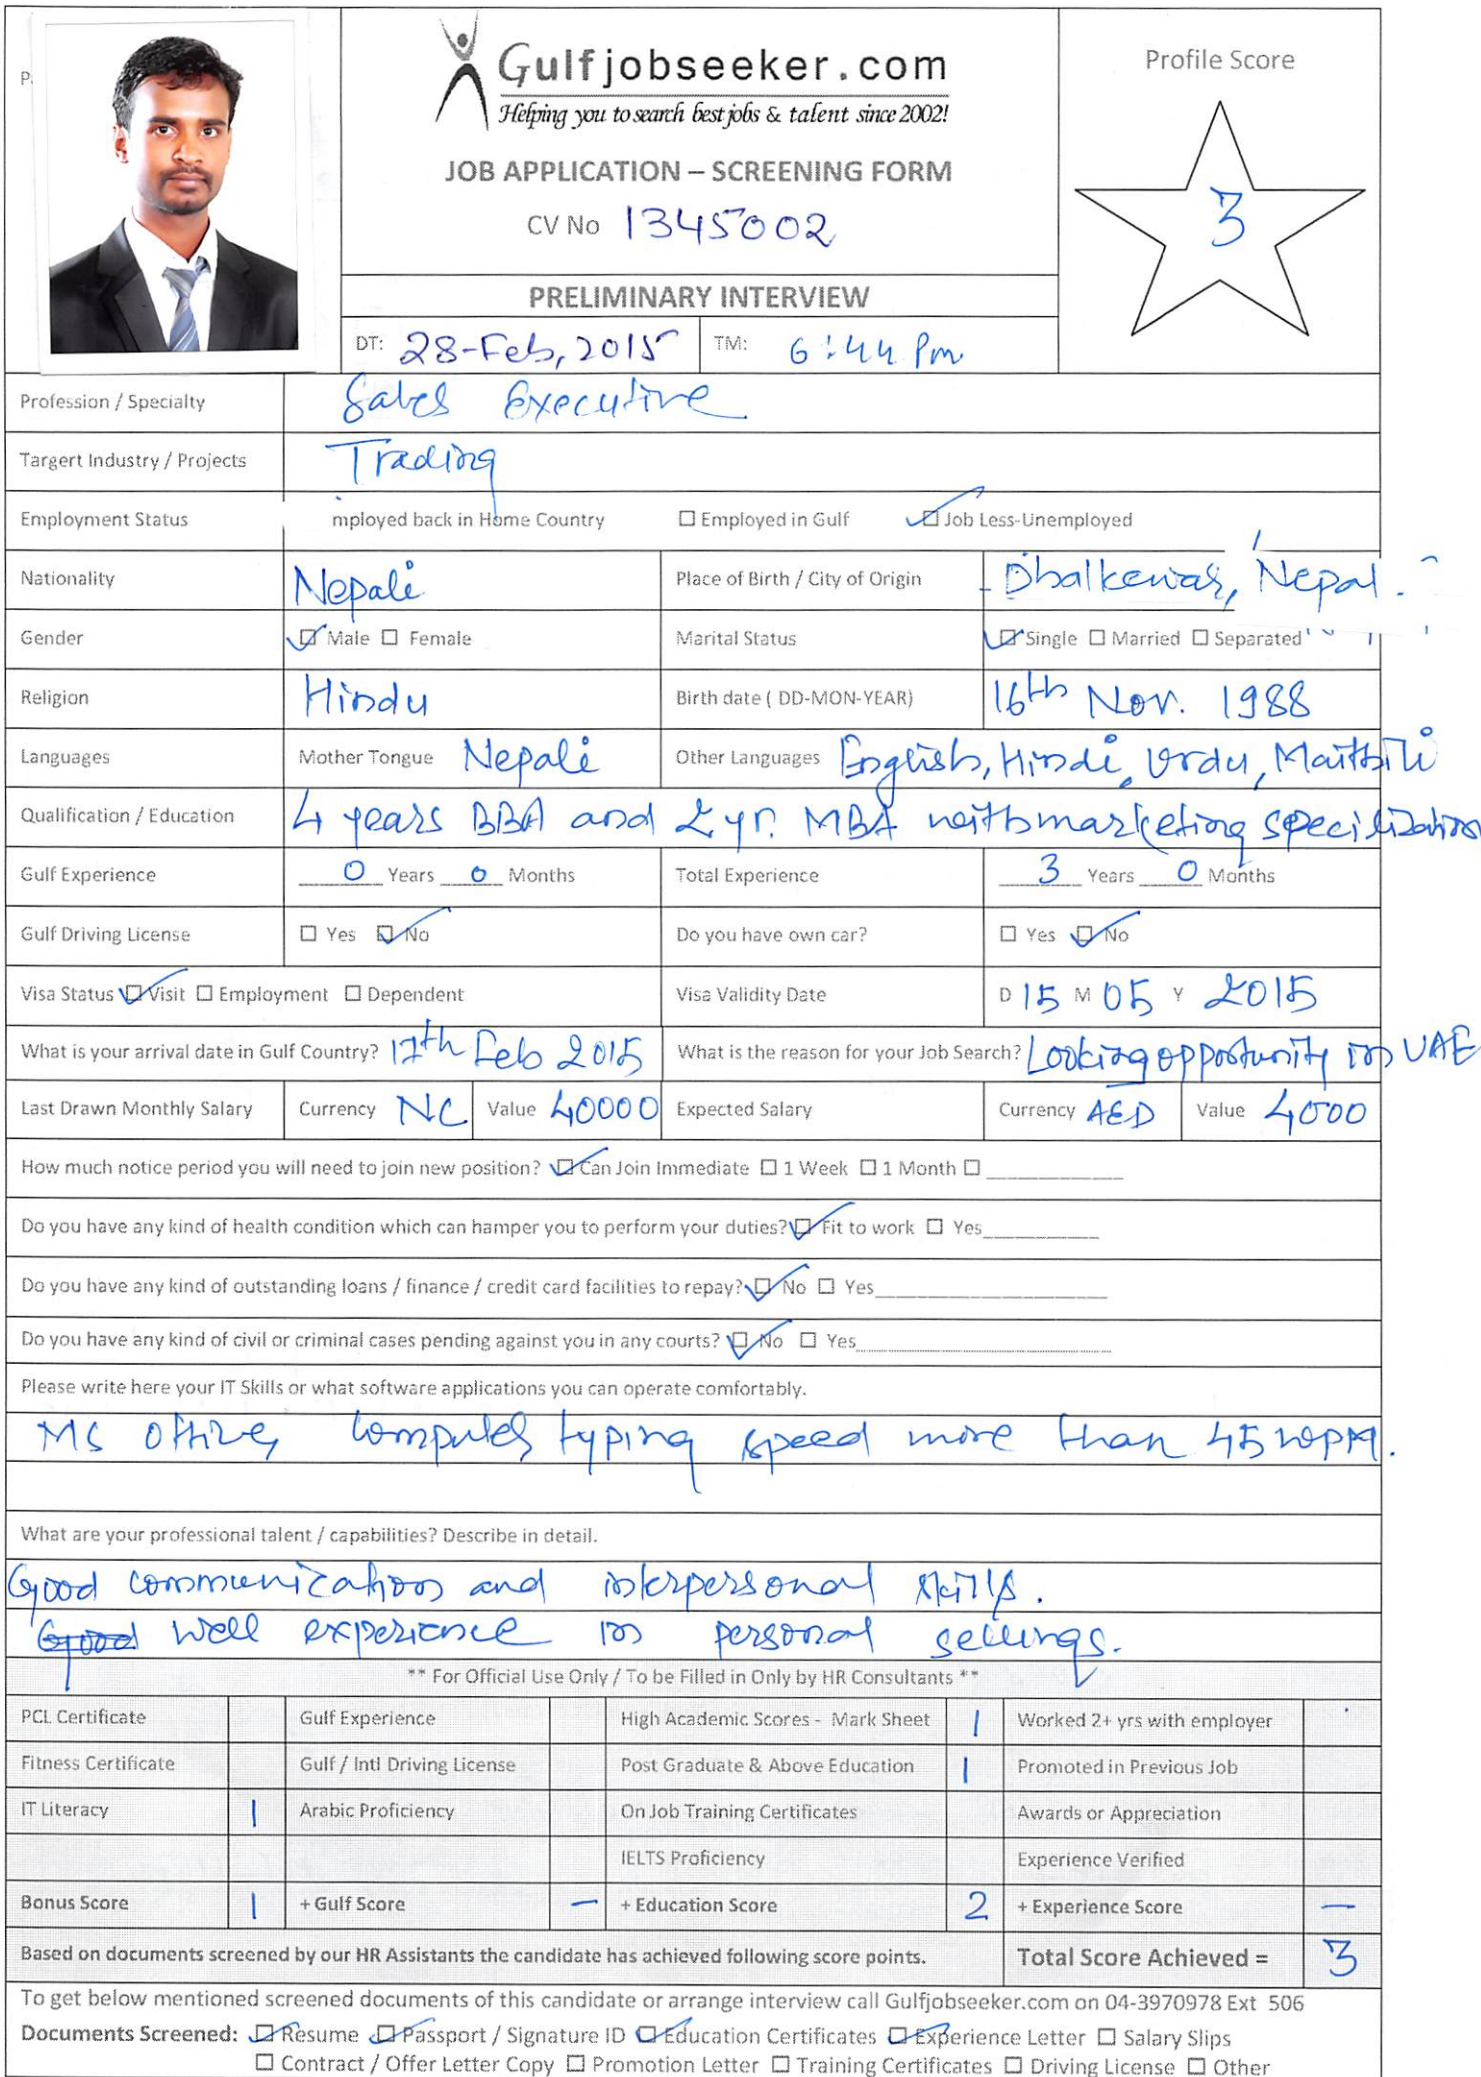 P
Gulfjobseeker.com
Helping you to search best jobs & talent since 2002!
JOB APPLICATION – SCREENING FORM
CV No 1345002
Profile Score
3
PRELIMINARY INTERVIEW
DT: 28-Feb, 2015 TM: 6:44 Pm
Profession / Specialty Sales Executive
Targert Industry / Projects Trading
Employment Status mployed back in Home Country ☐ Employed in Gulf ☑ Job Less-Unemployed
Nationality Nepali Place of Birth / City of Origin Dhalkewar, Nepal.
Gender ☑ Male ☐ Female Marital Status ☑ Single ☐ Married ☐ Separated
Religion Hindu Birth date ( DD-MON-YEAR) 16th Nov. 1988
Languages Mother Tongue Nepali Other Languages English, Hindi, Urdu, Maithili
Qualification / Education 4 years BBA and 2 yr. MBA with marketing specilization
Gulf Experience 0 Years 0 Months Total Experience 3 Years 0 Months
Gulf Driving License ☐ Yes ☑ No Do you have own car? ☐ Yes ☑ No
Visa Status ☑ Visit ☐ Employment ☐ Dependent Visa Validity Date D 15 M 05 Y 2015
What is your arrival date in Gulf Country? 17th Feb 2015 What is the reason for your Job Search? Looking opportunity in UAE
Last Drawn Monthly Salary Currency NC Value 40000 Expected Salary Currency AED Value 4000
How much notice period you will need to join new position? ☑ Can Join Immediate ☐ 1 Week ☐ 1 Month ☐ ____________
Do you have any kind of health condition which can hamper you to perform your duties? ☑ Fit to work ☐ Yes__________
Do you have any kind of outstanding loans / finance / credit card facilities to repay? ☑ No ☐ Yes____________________
Do you have any kind of civil or criminal cases pending against you in any courts? ☑ No ☐ Yes____________________
Please write here your IT Skills or what software applications you can operate comfortably.
MS Office, Computer typing speed more than 45 WPM.
What are your professional talent / capabilities? Describe in detail.
Good communication and interpersonal skills.
Good well experience in personal sellings.
** For Official Use Only / To be Filled in Only by HR Consultants **
PCL Certificate Gulf Experience High Academic Scores - Mark Sheet 1 Worked 2+ yrs with employer
Fitness Certificate Gulf / Intl Driving License Post Graduate & Above Education 1 Promoted in Previous Job
IT Literacy 1 Arabic Proficiency On Job Training Certificates Awards or Appreciation
IELTS Proficiency Experience Verified
Bonus Score 1 + Gulf Score — + Education Score 2 + Experience Score —
Based on documents screened by our HR Assistants the candidate has achieved following score points. Total Score Achieved = 3
To get below mentioned screened documents of this candidate or arrange interview call Gulfjobseeker.com on 04-3970978 Ext 506
Documents Screened: ☑ Resume ☑ Passport / Signature ID ☑ Education Certificates ☑ Experience Letter ☐ Salary Slips
☐ Contract / Offer Letter Copy ☐ Promotion Letter ☐ Training Certificates ☐ Driving License ☐ Other